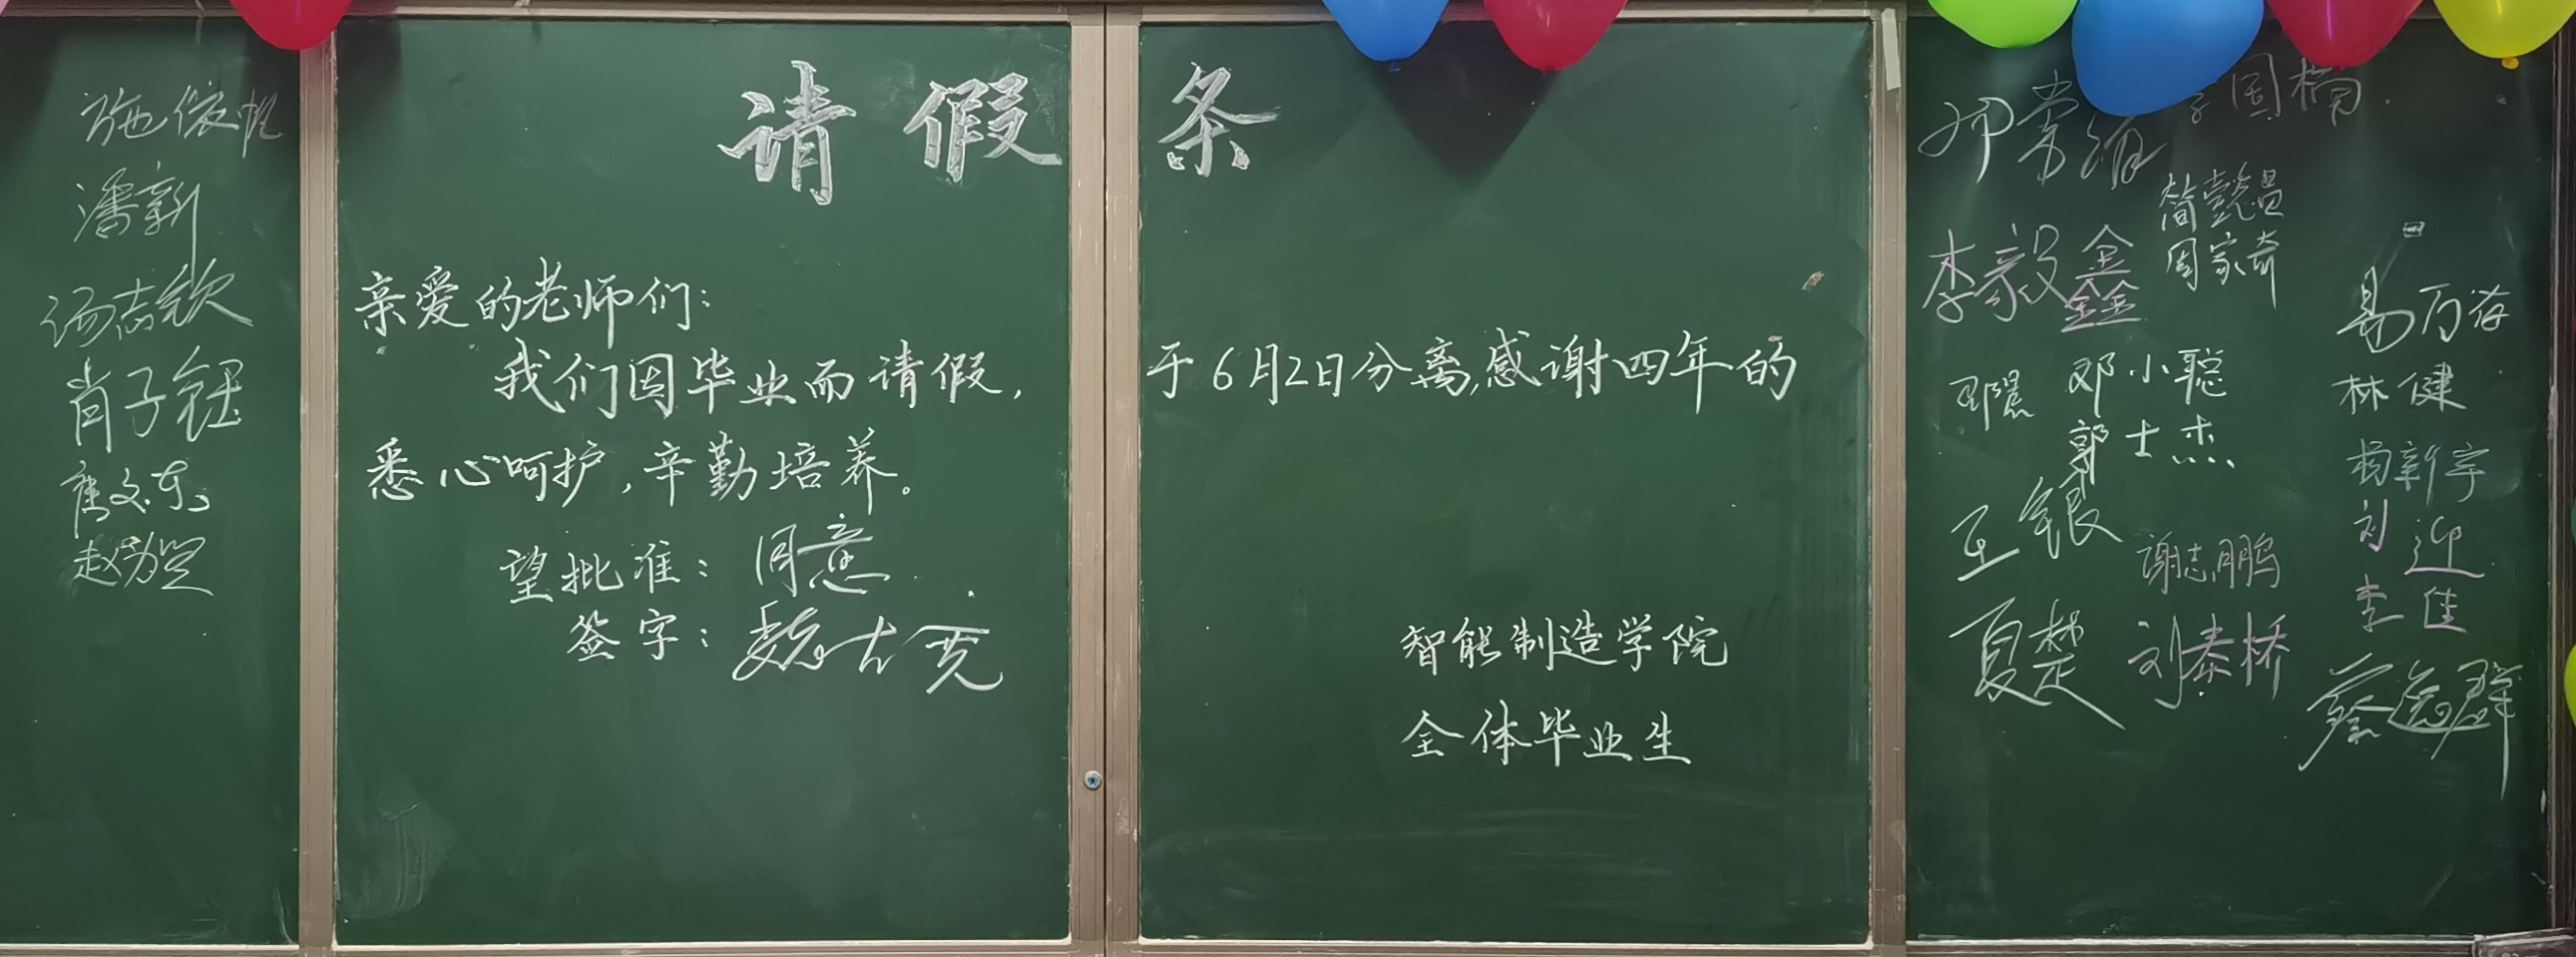 请假条
亲爱的老师们:
我们因毕业而请假,于6月2日分离,感谢四年的
悉心呵护,辛勤培养。
望批准:同意
签字:
智能制造学院
全体毕业生
潘新
汤志钦
肖子钰
国楠
周家奇
李毅鑫
邓小聪
郭士杰
王银
谢志鹏
夏楚
刘泰桥
林健
杨新宇
刘迎
李佳
蔡逸群